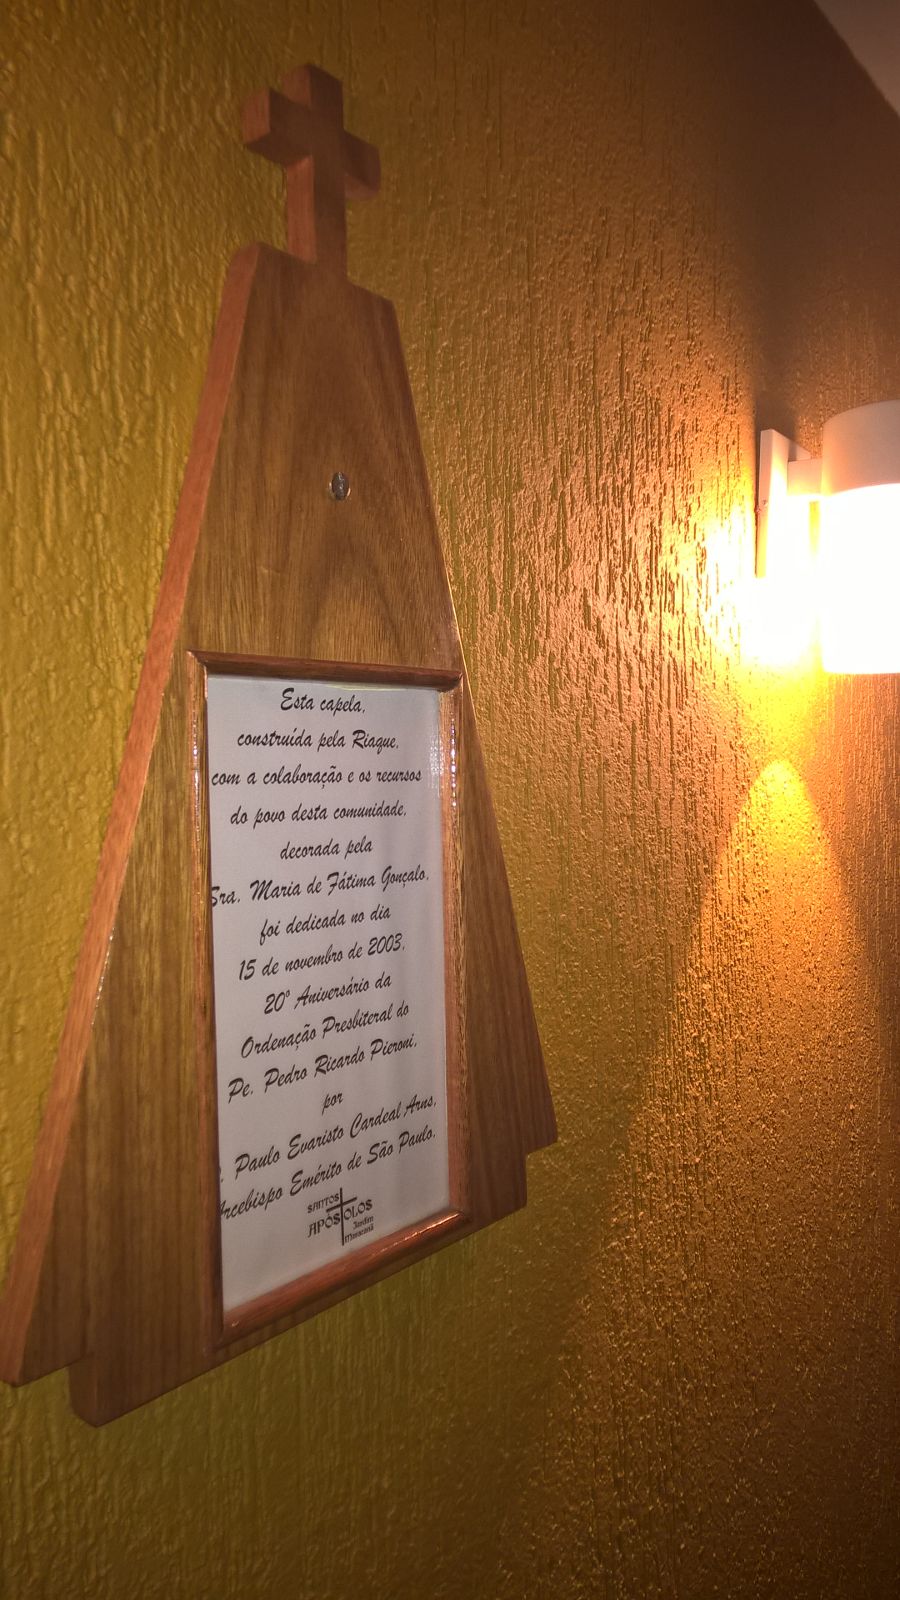 Esta capela,
construída pela Riaque,
com a colaboração e os recursos
do povo desta comunidade,
decorada pela
Sra. Maria de Fátima Gonçalo,
foi dedicada no dia
15 de novembro de 2003,
20º Aniversário da
Ordenação Presbiteral do
Pe. Pedro Ricardo Pieroni,
por
. Paulo Evaristo Cardeal Arns,
Arcebispo Emérito de São Paulo.
SANTOS
APÓSTOLOS
Jardim
Maracanã